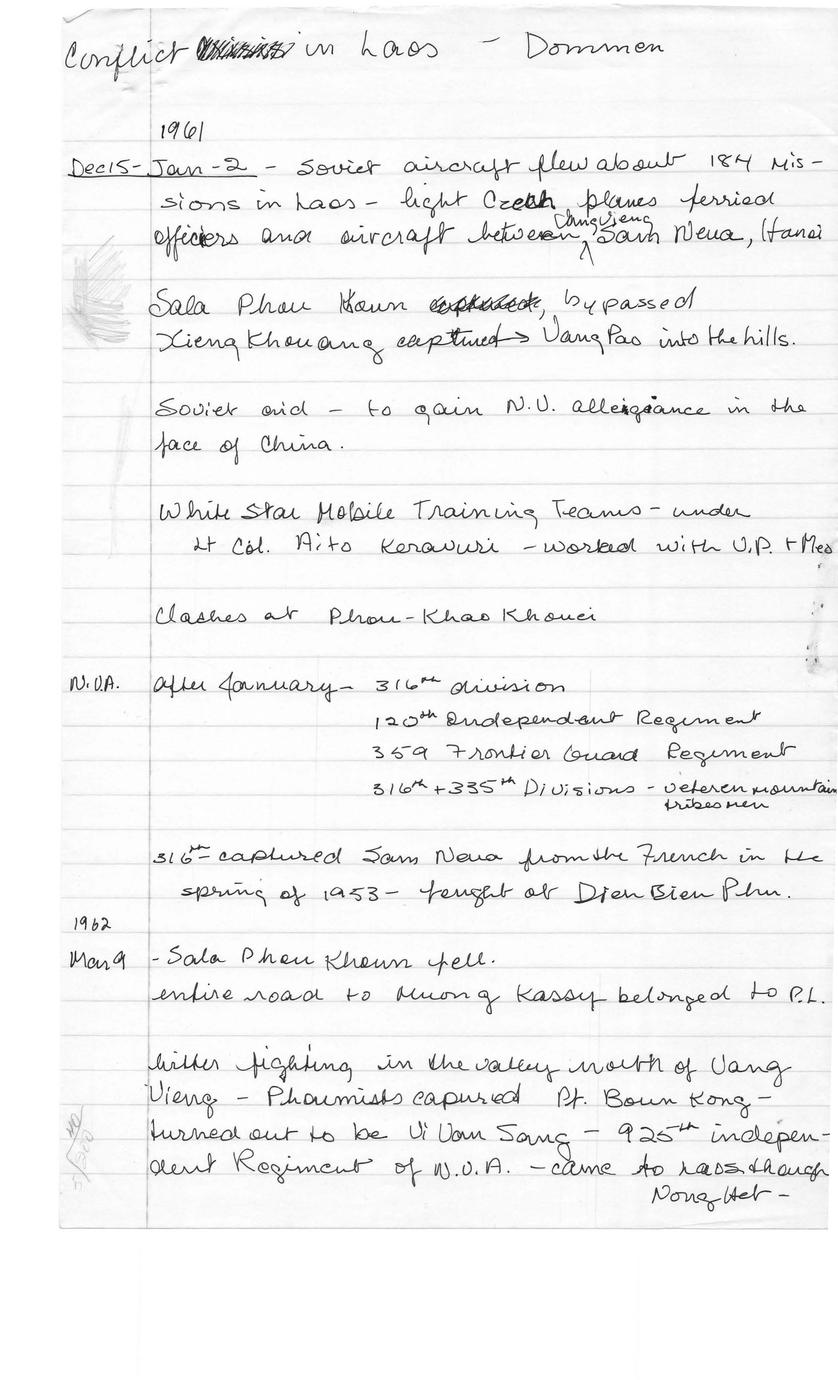 Conflict in Laos - Dommen
1961
Dec 15- Jan-2 - Soviet aircraft flew about 184 mis-
sions in Laos - light Czech planes ferried
officers and aircraft between Vang Vieng Sam Neua, Hanoi
Sala Phou Khoun, bypassed
Xieng Khouang captured → Vang Pao into the hills.
Soviet aid - to gain N.V. alleigiance in the
face of China.
White Star Mobile Training Teams - under
Lt Col. Aito Keravuri - worked with V.P. + Meo
Clashes at Phou-Khao Khouei
N.V.A. after January - 316th division
120th Independent Regiment
359 Frontier Guard Regiment
316th + 335th Divisions - veteren mountain
tribesmen
316th captured Sam Neua from the French in the
spring of 1953 - fought at Dien Bien Phu.
1962
Mar 9 - Sala Phou Khoun fell.
entire road to Muong Kassy belonged to P.L.
bitter fighting in the valley north of Vang
Vieng - Phoumists capured Pt. Boun Kong -
turned out to be Vi Van Sang - 925th indepen-
dent Regiment of N.V.A. - came to Laos though
Nong Het -